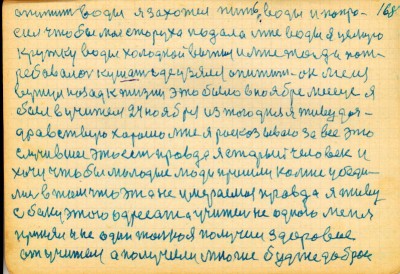 апитит воды я захотел пить воды и попро- 168
сил чтобы моя старуха подала мне воды я целую
кружку воды холодной выпил и мне тогда пот-
ребовалос кушат а друзя мои апитит он меня
вернул назад к жизни это было в ноябре месяце я
был в учителя 24 ноября из того дня я живу и
здравствую хорошо мне я росказываю за все это
случившее это ест правда я старый человек и
хочу чтобы молодые люди пришли ко мне убеди-
лис в том что это не умераемое правда я живу
с боку этого адресата учител не одного меня
принял и не один толко я получил здоровие
от учителя а получили многие буд же добрые